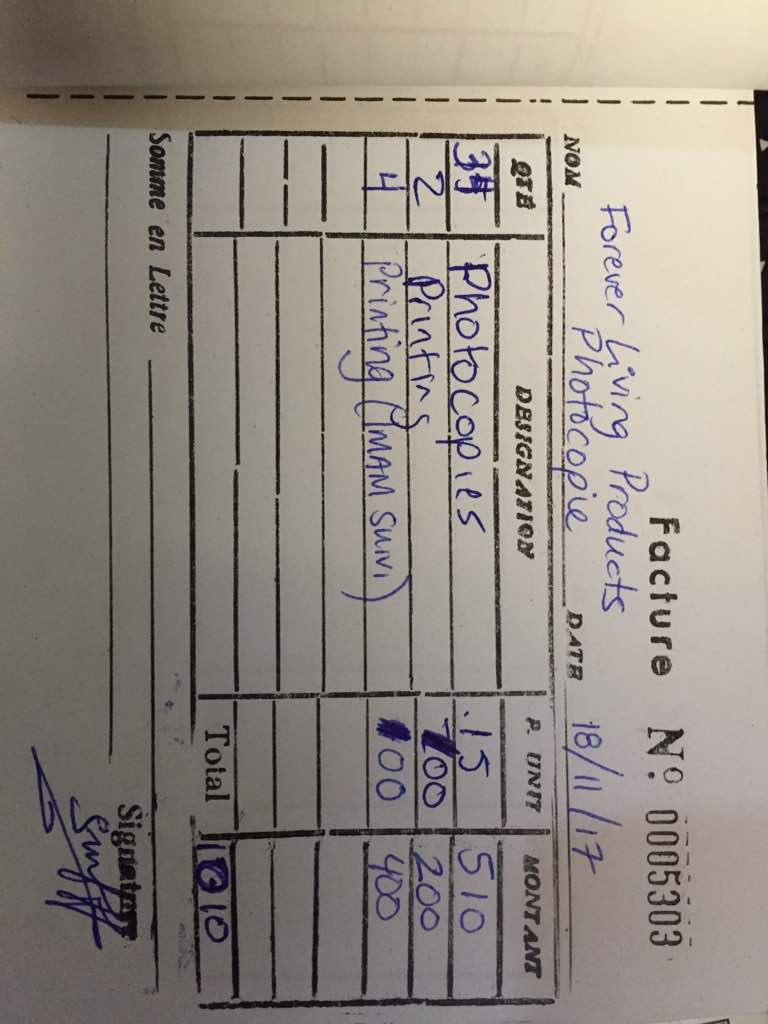 Facture Nº 0005303
Forever Living Products
NOM Photocopie DATE 18/11/17
QTÉ DESIGNATION P. UNIT MONTANT
34 Photocopies .15 510
2 Printing 100 200
4 Printing (IMAM SUIVI) 100 400
Total
Somme en Lettre
Signature